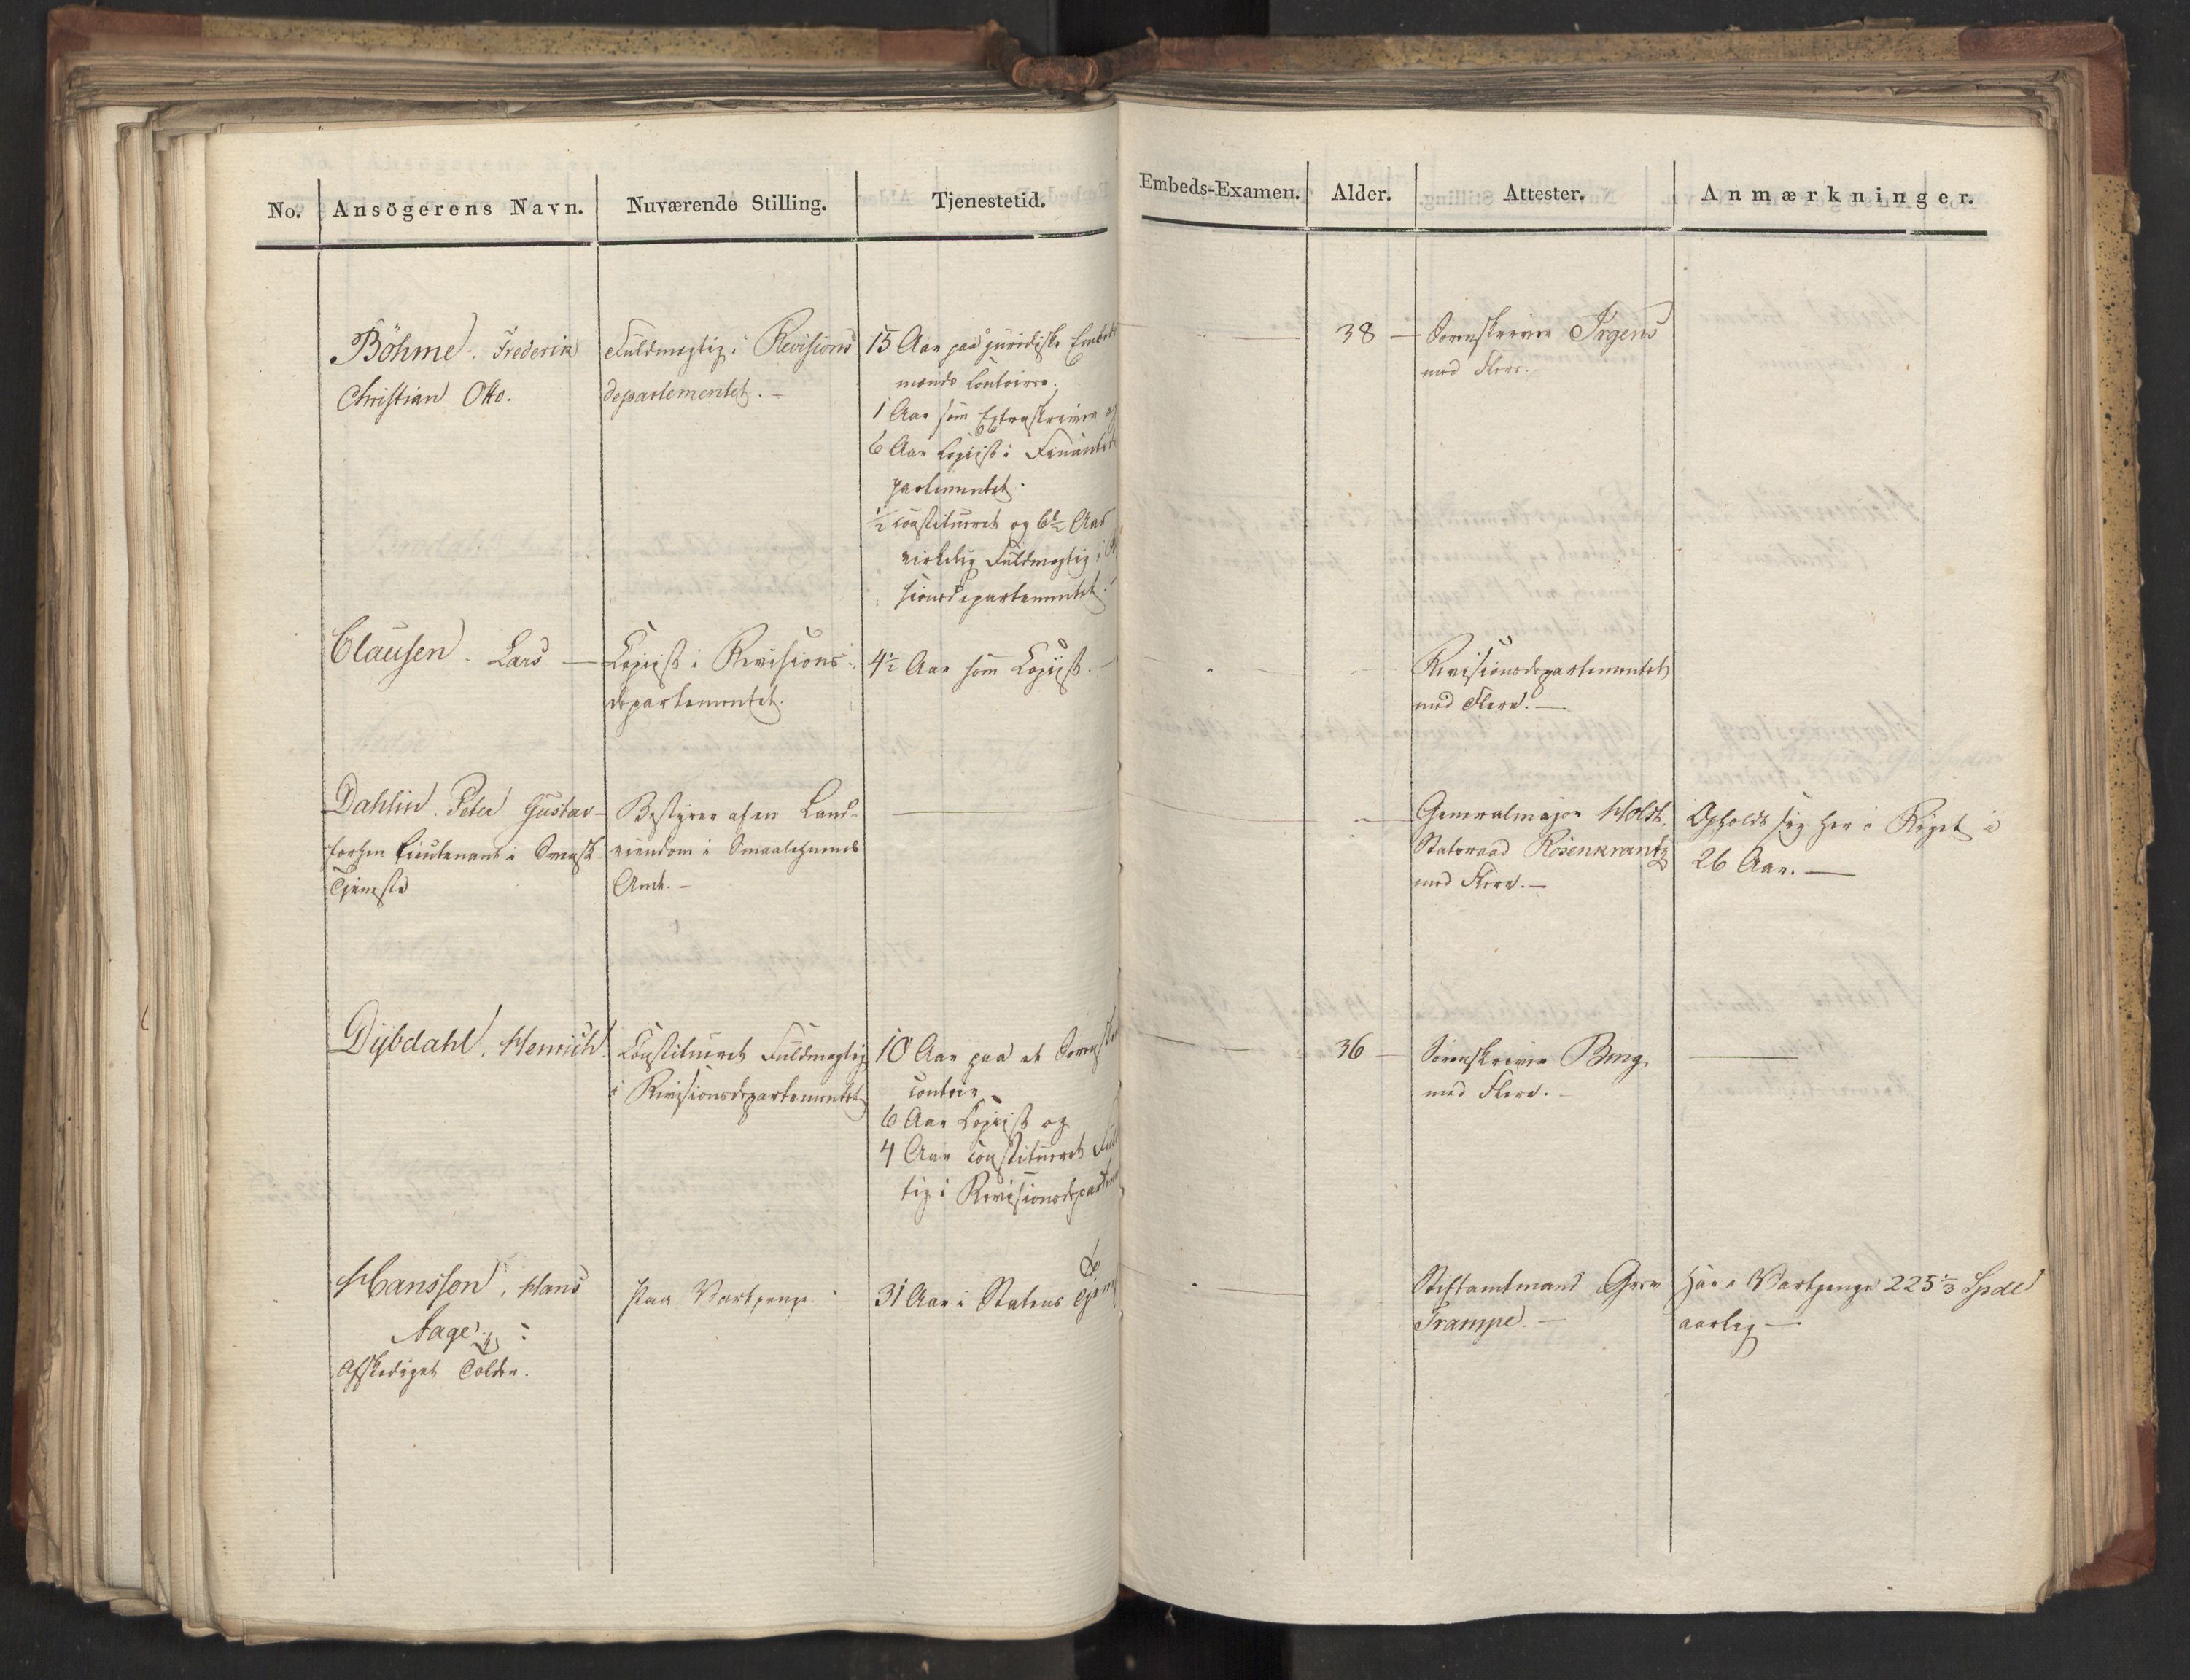 No. Ansögerens Navn. Nuværende Stilling. Tjenestetid. Embeds-Examen. Alder. Attester. Anmærkninger.
Böhme. Frederik
Christian Otto.
Fuldmægtig i Revisions
departementet. -
15 Aar paa juridiske Embeds
mænds Contoirer.
1 Aar som Extraskriver og
6 Aar Copiist i Finantsde
partementet.
½ constitueret og 6½ Aar
virkelig Fuldmægtig i
sionsdepartementet.
38 -
Sorenskriver Irgens
med Flere.
Clausen. Lars -
Copiist i Revisions
departementet.
4½ Aar som Copiist. -
Revisionsdepartementet
med Flere. -
Dahlin. Peter Gustav -
forhen Lieutenant i Svensk
Tjeneste
Bestyrer af en Land-
eiendom i Smaalehnenes
Amt. -
Generalmajor Holst,
Statsraad Rosenkrantz
med Flere. -
Opholdt sig her i Riget i
26 Aar. -
Dybdahl, Henrich.
Constitueret Fuldmægtig
i Revisionsdepartementet
10 Aar paa et Sorenskr
contoir
6 Aar Copiist og
4 Aar constitueret Fuld
tig i Revisionsdepartem
36 -
Sorenskriver Bing
med Flere. -
Hansson, Hans
Aage.
Afsskediget Tolder.
paa Vartpenge.
31 Aar i Statens Tjene
Stiftamtmand Grev
Trampe. -
Har i Vartpenge 225⅓ Spdlr
aarlig -